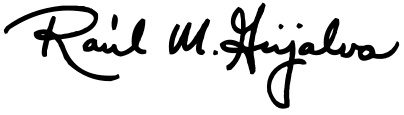 Raúl M. Grijalva